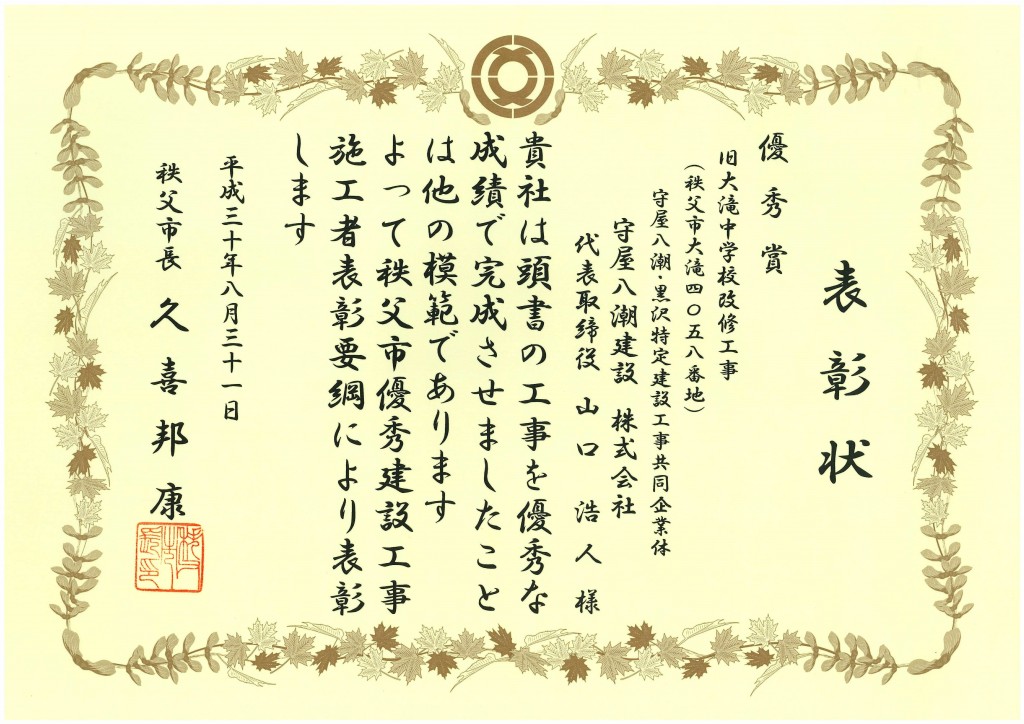 表彰状
優秀賞
旧大滝中学校改修工事
(秩父市大滝四〇五八番地)
守屋八潮・黒沢特定建設工事共同企業体
守屋八潮建設 株式会社
代表取締役 山口 浩人 様
貴社は頭書の工事を優秀な
成績で完成させましたこと
は他の模範であります
よって秩父市優秀建設工事
施工者表彰要綱により表彰
します
平成三十年八月三十一日
秩父市長 久喜邦康